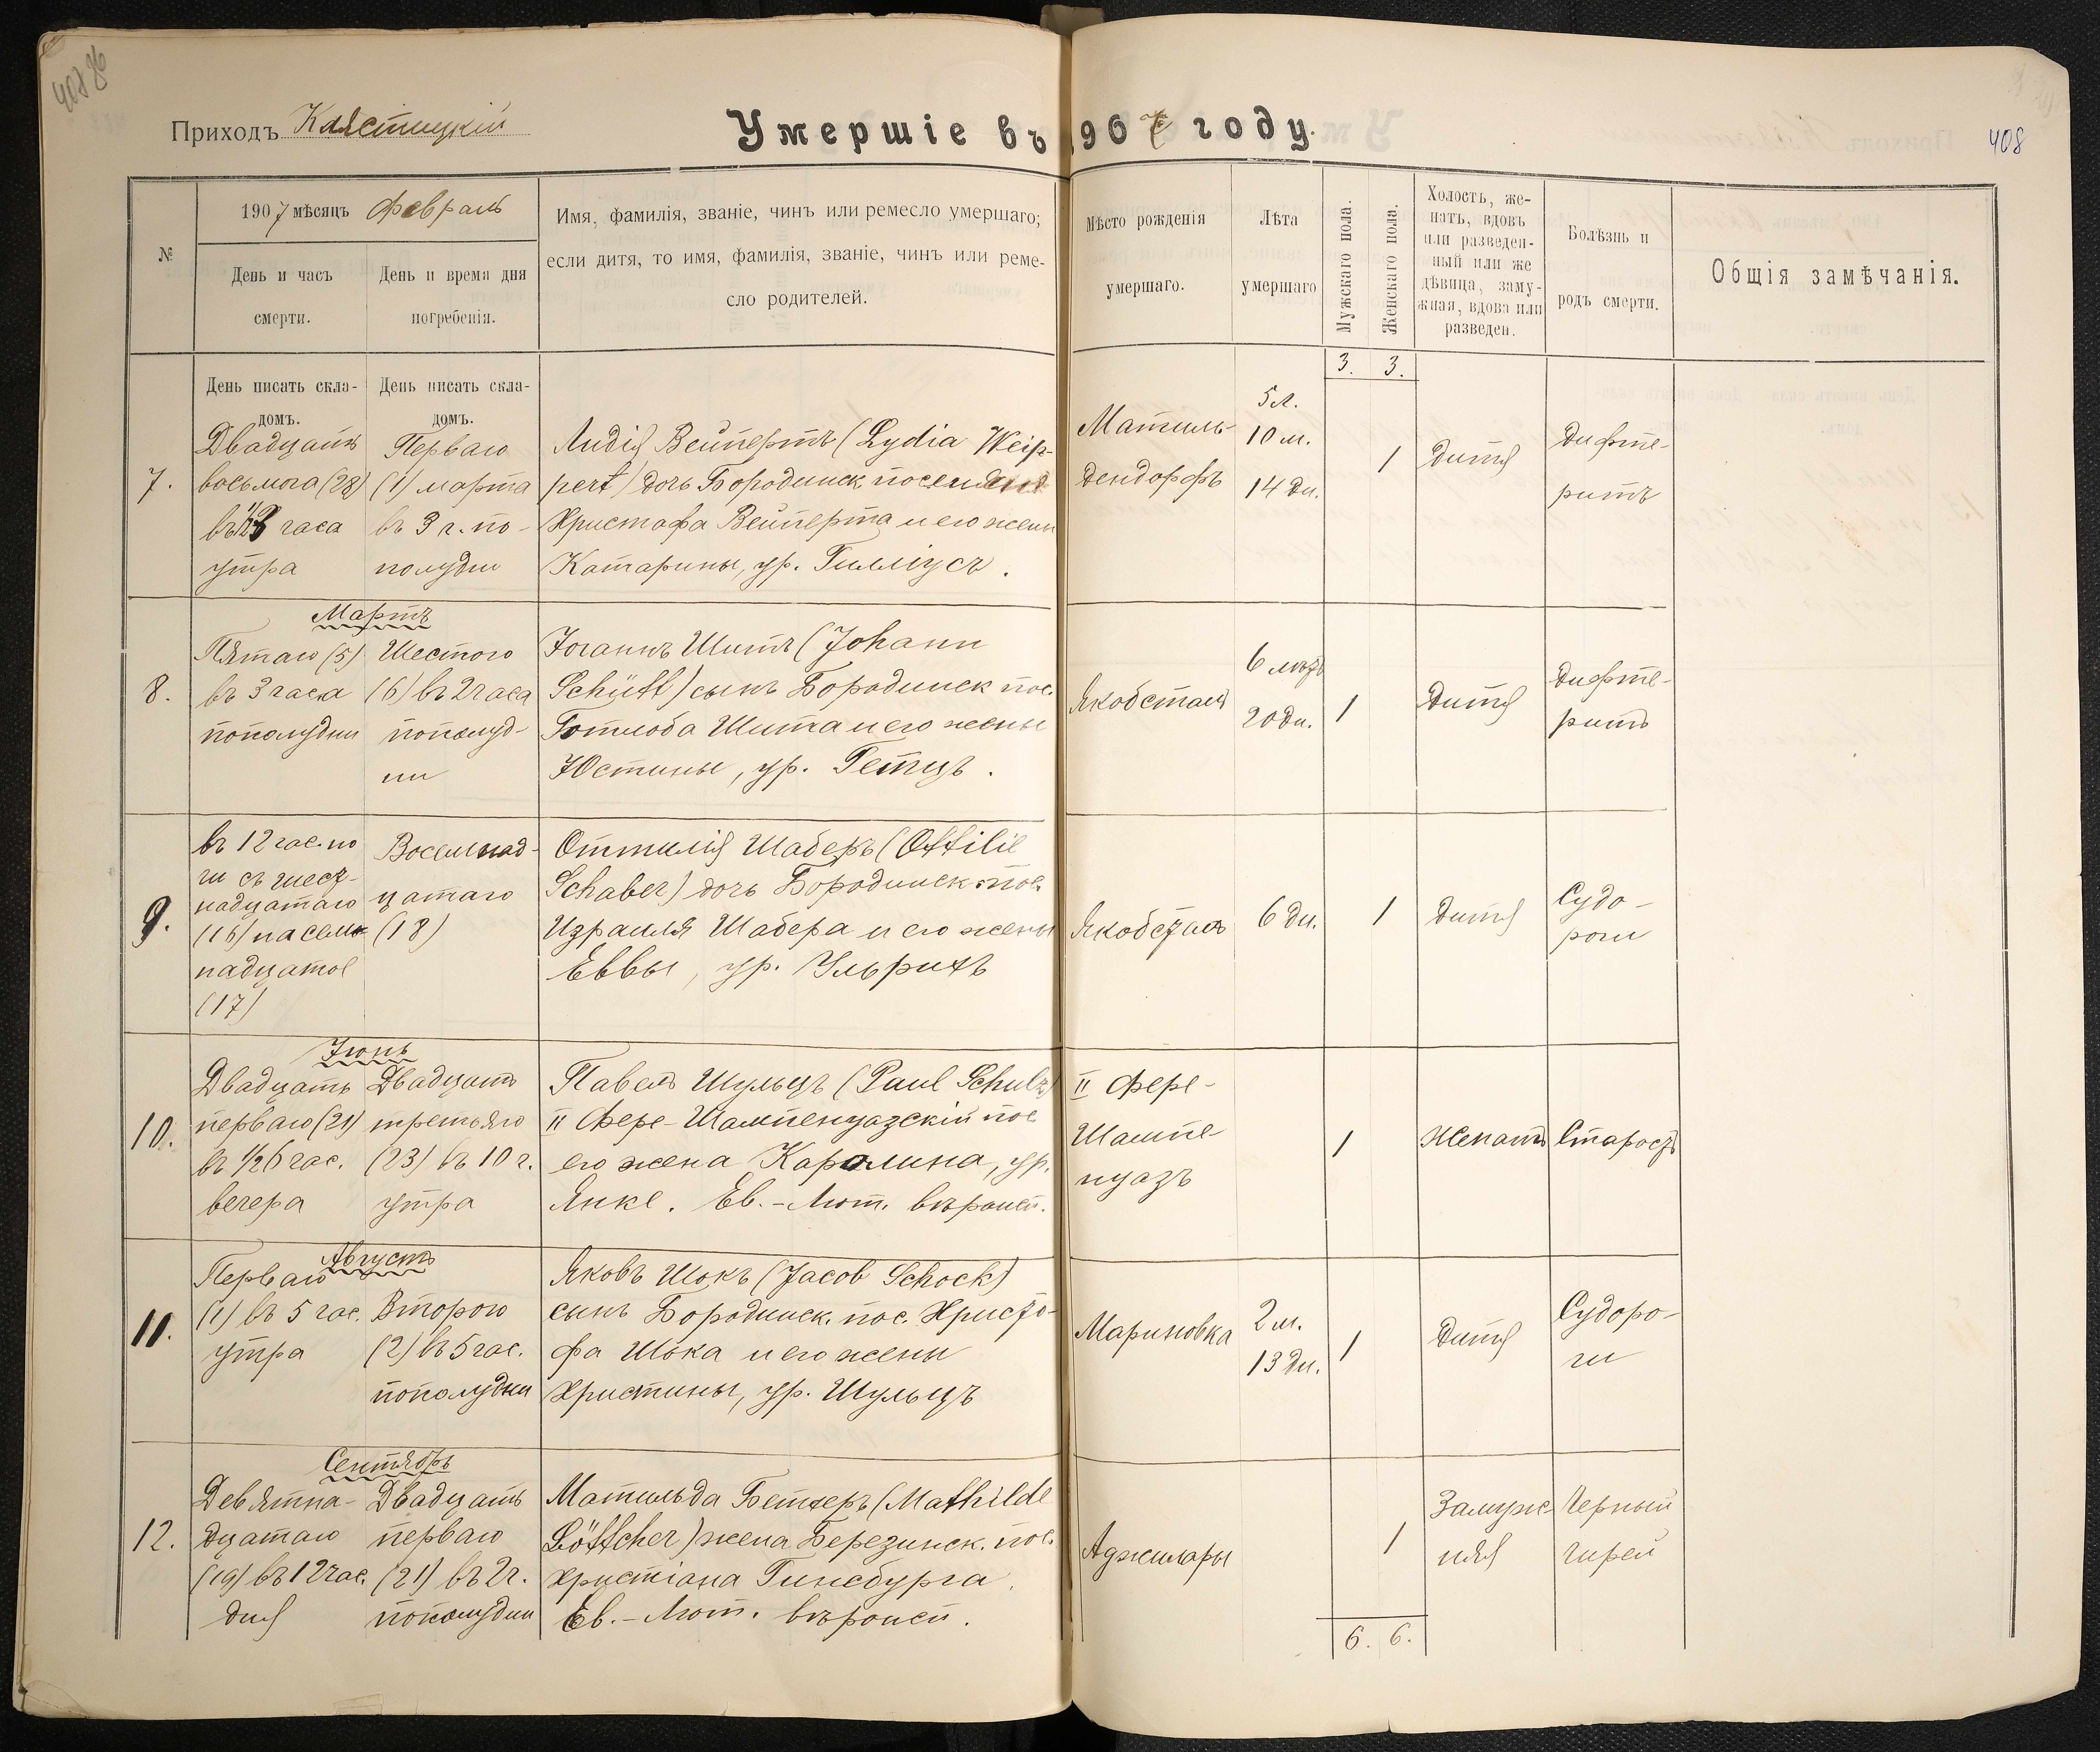 408
Приходъ Клястицкій
Умершіе въ 1907 году.
408
№
1907 мѣсяцъ Февраль
День и часъ
смерти.
День и время дня
погребенія.
Имя, фамилія, званіе, чинъ или ремесло умершаго;
если дитя, то имя, фамилія, званіе, чинъ или реме-
сло родителей.
Мѣсто рожденія
умершаго.
Лѣта
умершаго
Мужскаго пола.
Женскаго пола.
Холостъ, же-
натъ, вдовъ
или разведен-
ный или же
дѣвица, заму-
жняя, вдова или
разведен.
Болѣзнь и
родъ смерти.
Общія замѣчанія.
3. 3.
7.
День писать скла-
домъ.
Двадцать
восьмого (28)
часа
утра
День писать скла-
домъ.
Перваго
(1) марта
въ 3 ч. по-
полудни
Лидія Вейпертъ (Lydia Weip-
pert) дочь Бородинск поселян
Христофа Вейперта и его жены
Катарины, ур. Гилліусъ.
Матиль-
дендорфъ
5 л.
10 м.
14 дн.
1
дитя
дифте-
ритъ
8.
Мартъ
Пятаго (5)
въ 3 часа
пополудни
Шестого
(6) въ 2 часа
пополуд-
ни
Іоганнъ Шитъ (Johann
Schütt) сынъ Бородинск пос.
Готлоба Шита и его жены
Юстины, ур. Гетцъ.
Якобсталь
6 лѣтъ
20 дн.
1
дитя
дифте-
ритъ
9.
въ 12 час. но
чи съ шест-
надцатаго
(16) на семь
надцатое
(17)
Восемнад-
цатаго
(18)
Оттилія Шаберъ (Ottilie
Schaber) дочь Бородинск. пос.
Израиля Шабера и его жены
Еввы, ур. Ульрихъ
Якобсталь
6 дн.
1
дитя
Судо-
роги
10.
Іюнь
Двадцать
перваго (21)
въ ½6 час.
вечера
Двадцать
третьяго
(23) въ 10 ч.
утра
Павелъ Шульцъ (Paul Schulz)
II Фере-Шампенуазскій пос
его жена Каролина, ур.
Янке. Ев.-Лют. вѣроисп.
II Фере-
Шампе-
нуазъ
1
Женатъ
Старость
11.
Августъ
Перваго
(1) въ 5 час.
утра
Второго
(2) въ 5 час.
пополудни
Яковъ Шокъ (Jacob Schock)
сынъ Бородинск. пос. Христо-
фа Шока и его жены
Христины, ур. Шульцъ
Мариновка
2 м.
13 дн.
1
дитя
Судоро-
ги
12.
Сентябрь
Девятна-
дцатаго
(19) въ 12 час.
дня
Двадцать
перваго
(21) въ 2 ч.
пополудни
Матильда Бетхеръ (Mathilde
Böttcher) жена Березинск. пос.
Христіана Гинсбурга.
Ев.-Лют. вѣроисп.
Аджилары
1
Замуж-
няя
Черный
чирей
6. 6.